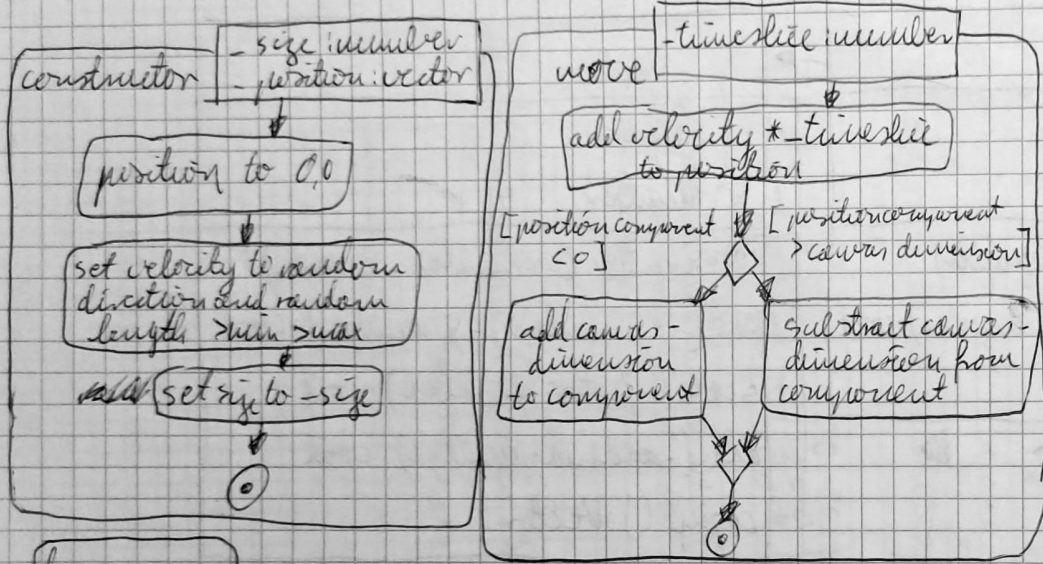 constructor
_size : number
_position : vector
position to 0,0
set velocity to random
direction and random
length >min >max
set size to _size
move
_timeslice : number
add velocity * _timeslice
to position
[position component
< 0]
[positioncomponent
> canvas dimension]
add canvas-
dimension
to component
substract canvas-
dimension from
component